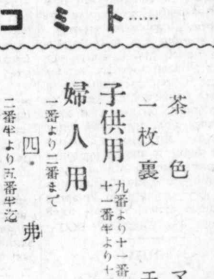 トミコ
茶色
一枚裏
子供用
九番より十一番
十一番半より十
婦人用
一番より二番まで
二番半より五番半迄
四.弗